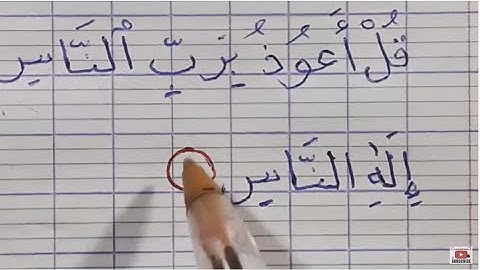 قُلْ أَعُوذُ بِرَبِّ ٱلنَّاسِ
إِلَٰهِ النَّاسِ
SUBSCRIBE